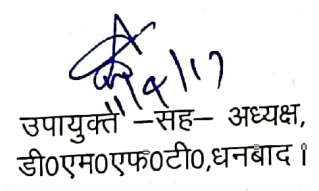 11/9/17
उपायुक्त –सह– अध्यक्ष,
डी0एम0एफ0टी0,धनबाद ।